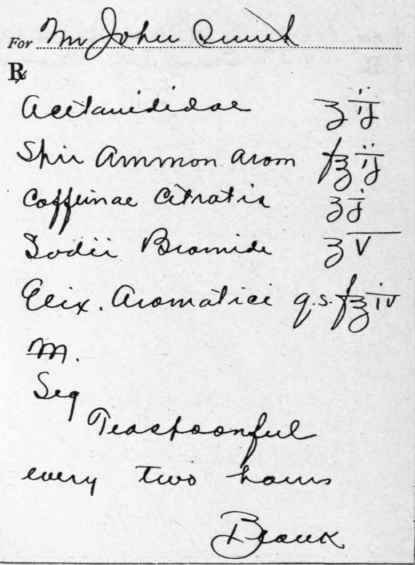 For Mr John Smith
℞
Acetanididae ʒ ij
Spir Ammon arom fʒ ij
Caffeinae Citratis ʒ j
Sodii Bromide ʒ v
Elix. Aromatici q.s. fʒ iv
M.
Sig
Teaspoonful
every two hours
Blank